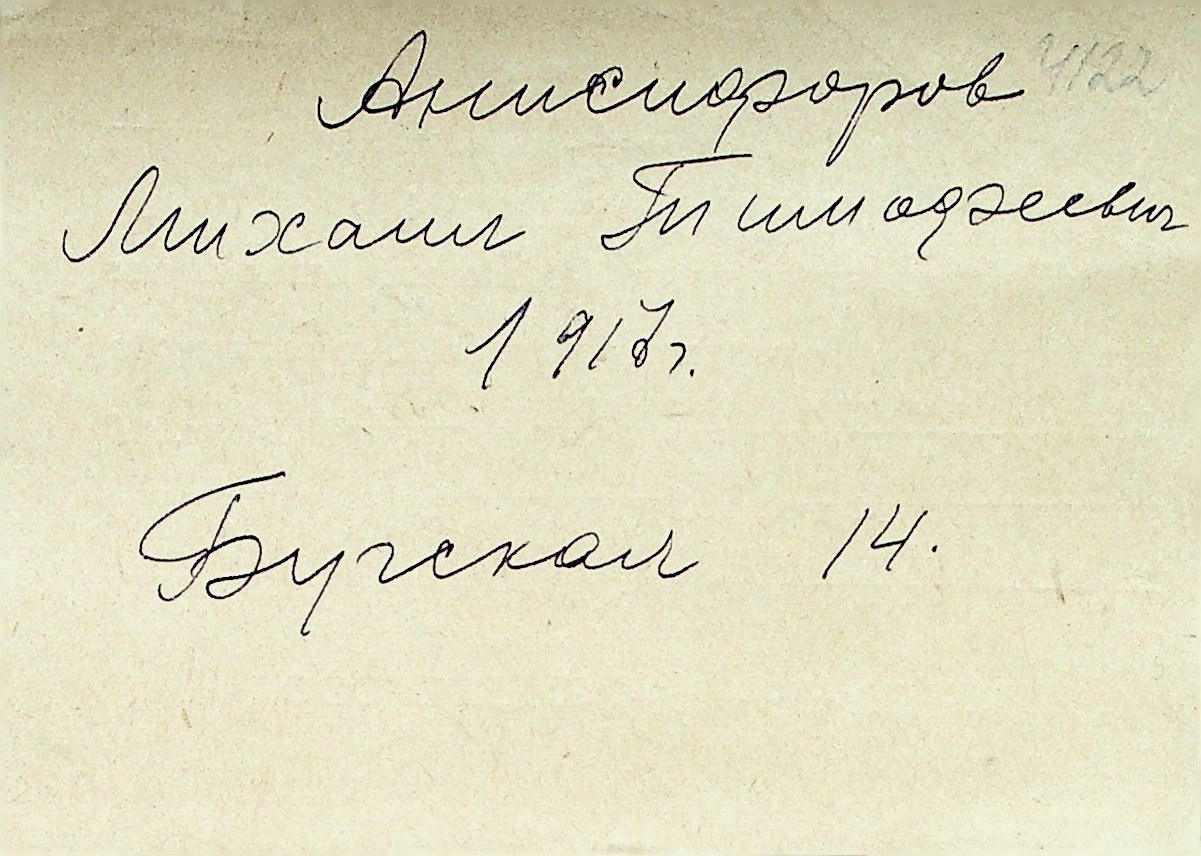 Анисифоров 4122
Михаил Тимофеевич
1917г.
Бугская 14.